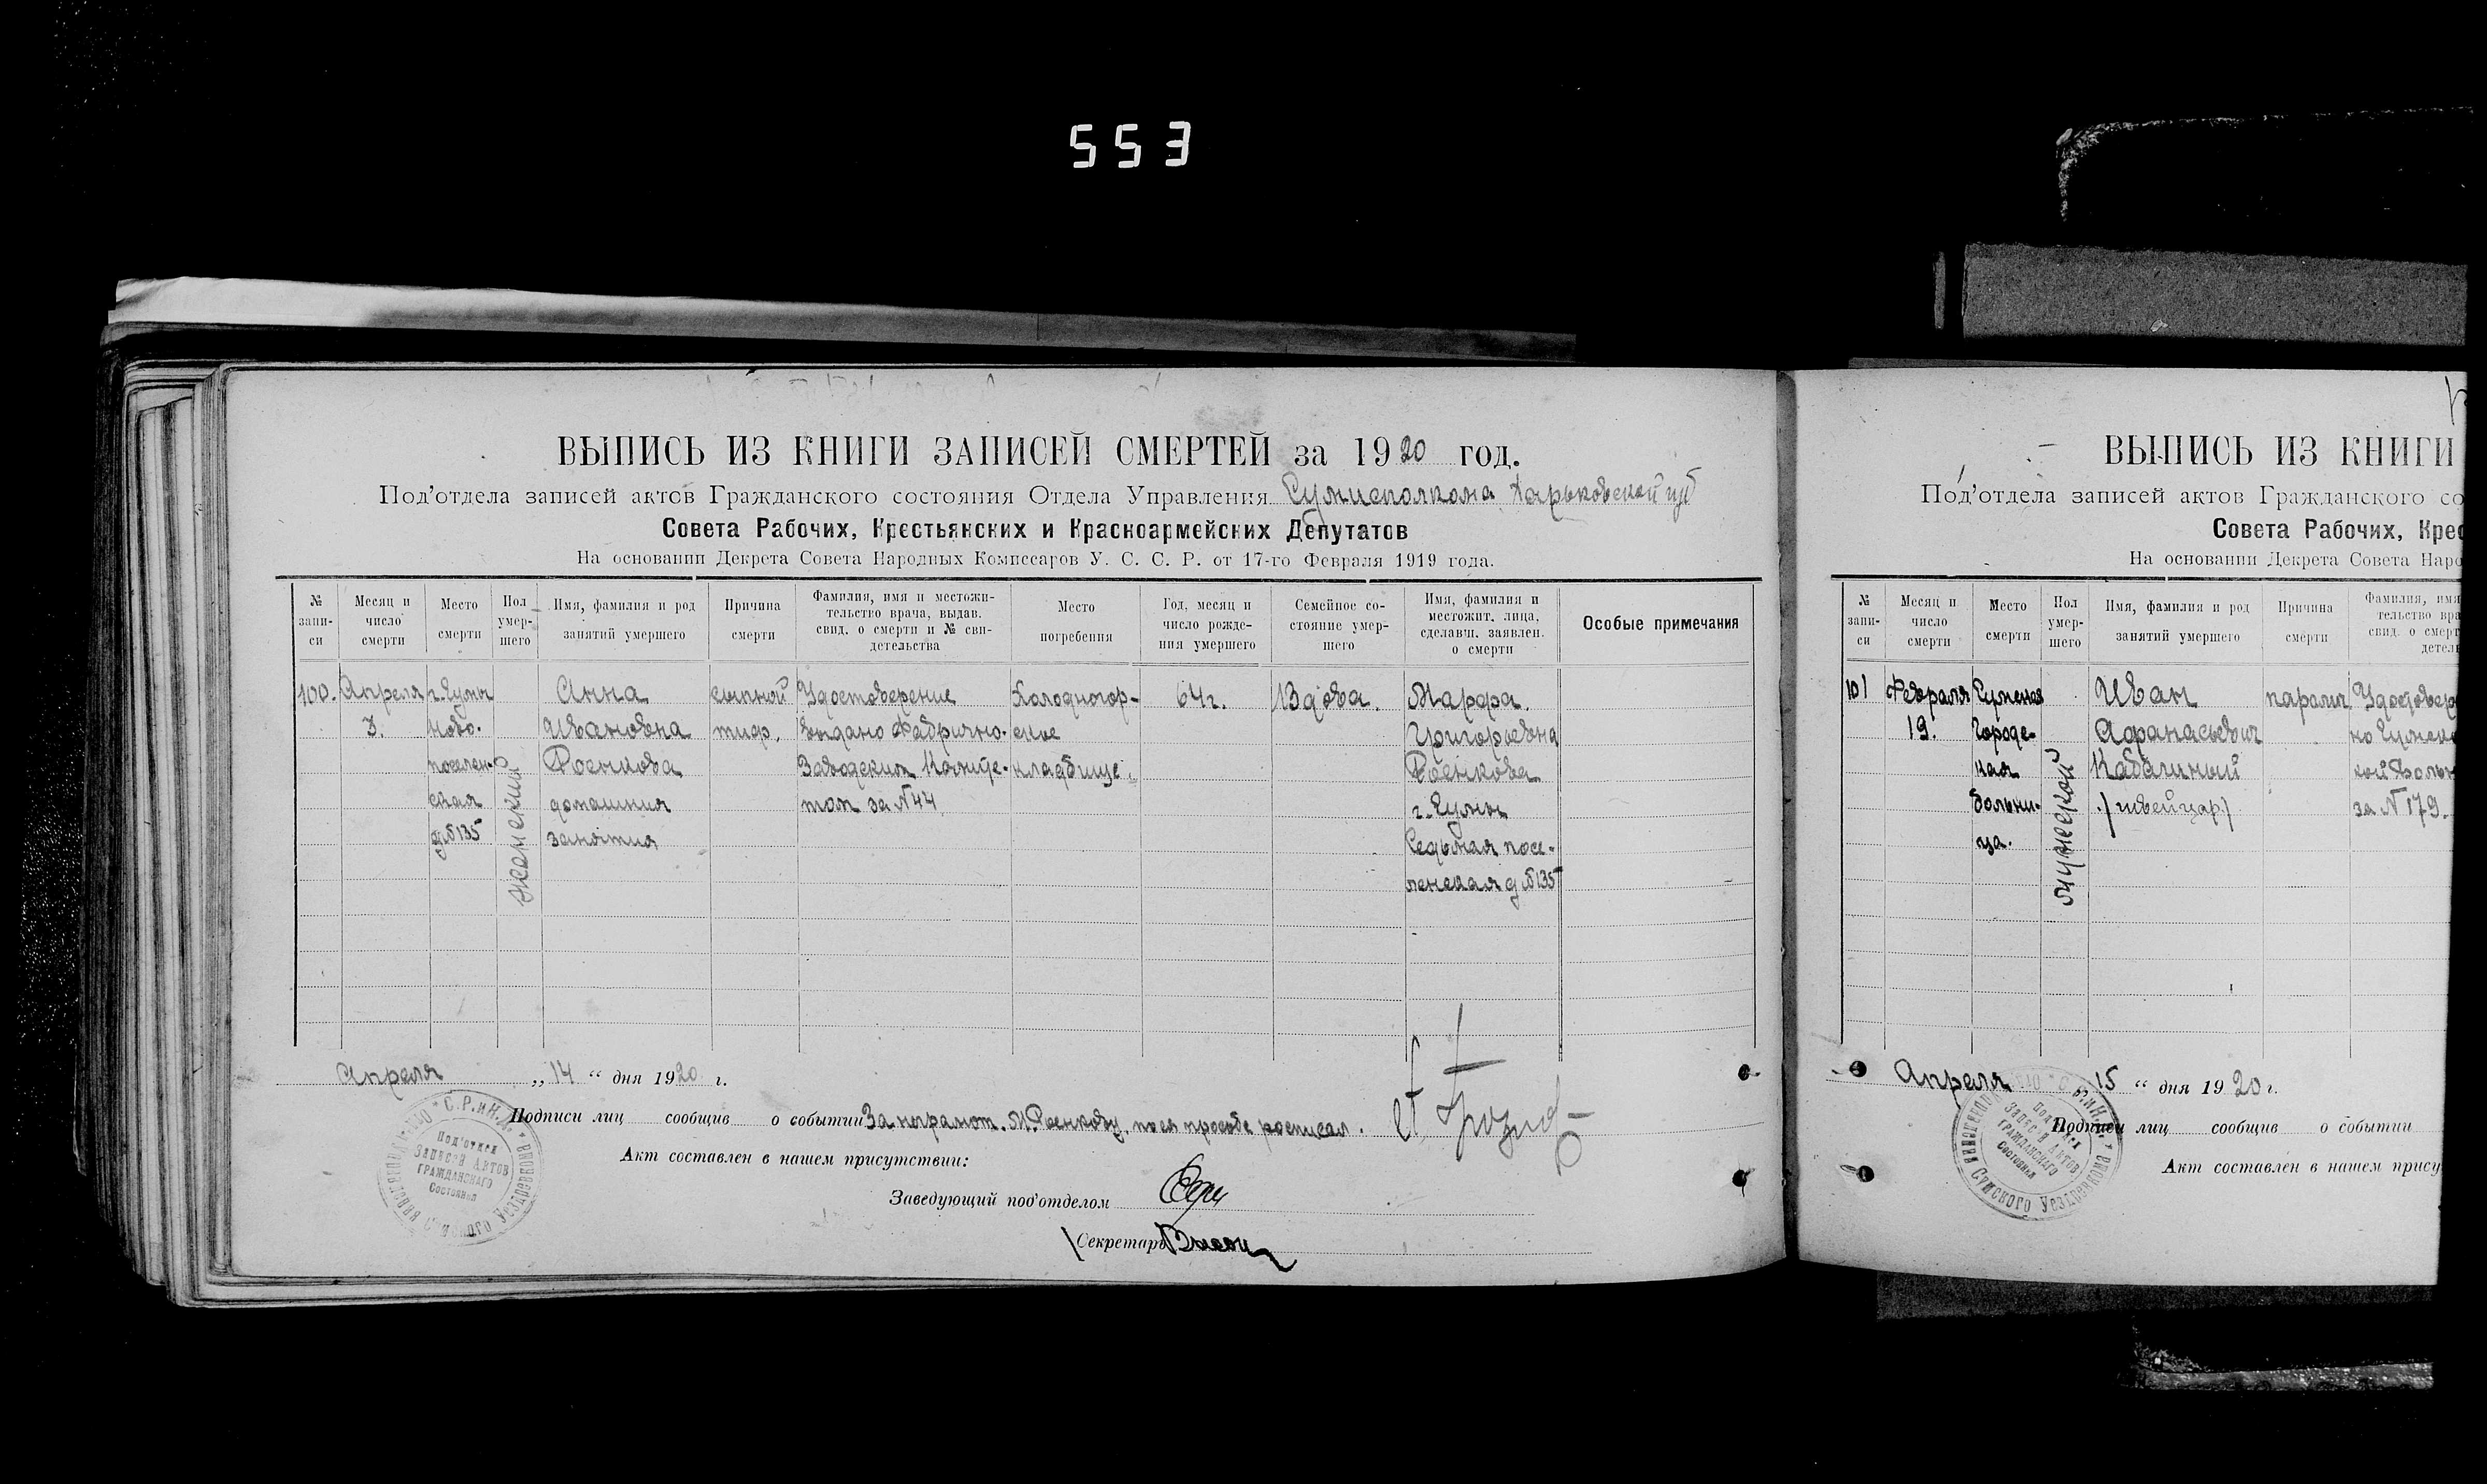 553
ВЫПИСЬ ИЗ КНИГИ ЗАПИСЕЙ СМЕРТЕЙ за 1920 год.
Под'отдела записей актов Гражданского состояния Отдела Управления Сумисполкома Харьковской губ
Совета Рабочих, Крестьянских и Красноармейских Депутатов
На основании Декрета Совета Народных Комиссаров У. С. С. Р. от 17-го Февраля 1919 года.
№ запи-си
Месяц и число смерти
Место смерти
Пол умер-шего
Имя, фамилия и род занятий умершего
Причина смерти
Фамилия, имя и местожи-тельство врача, выдав. свид. о смерти и № сви-детельства
Место погребения
Год, месяц и число рожде-ния умершего
Семейное со-стояние умер-шего
Имя, фамилия и местожит. лица, сделавш. заявлен. о смерти
Особые примечания
100. Апреля г. Сумы Анна сыпной Удостоверение Холодногор- 64 г. Вдова. Марфа.
3. Ново. Ивановна тиф. выдано Фабрично- ское Григорьевна
поселен- Роенкова Заводским Комите- кладбище. Роенкова
ская домашния том за №44 г. Сумы
д №135 занятия Седьмая посе-
женский
ленская д №135
Апреля „14“ дня 1920 г.
Подписи лиц сообщив о событии За неграмот. М. Роенкову, по ея просьбе росписал.
Акт составлен в нашем присутствии:
Заведующий под'отделом
Секретарь
С.Р.иК.Д.
Под'отдел
Записей Актов
Гражданскаго
Состояния
Сумского Уездревкома
ВЫПИСЬ ИЗ КНИГИ
Под'отдела записей актов Гражданского со
Совета Рабочих, Крес
На основании Декрета Совета Наро
№ запи-си
Месяц и число смерти
Место смерти
Пол умер-шего
Имя, фамилия и род занятий умершего
Причина смерти
Фамилия, имя
тельство вра
свид. о смерт
детел
101 Февраля Сумская Иван паралич Удостовер
19. Городс- Афанасьевич но Сумско
кая Кабачный кой Больн
больни- /швейцар/ за №179.
ца.
мужеской
Апреля 15“ дня 1920 г.
Подписи лиц сообщив о событии
Акт составлен в нашем прису
Под'отдел
Записей Актов
Гражданскаго
Состояния
Сумского Уездревкома